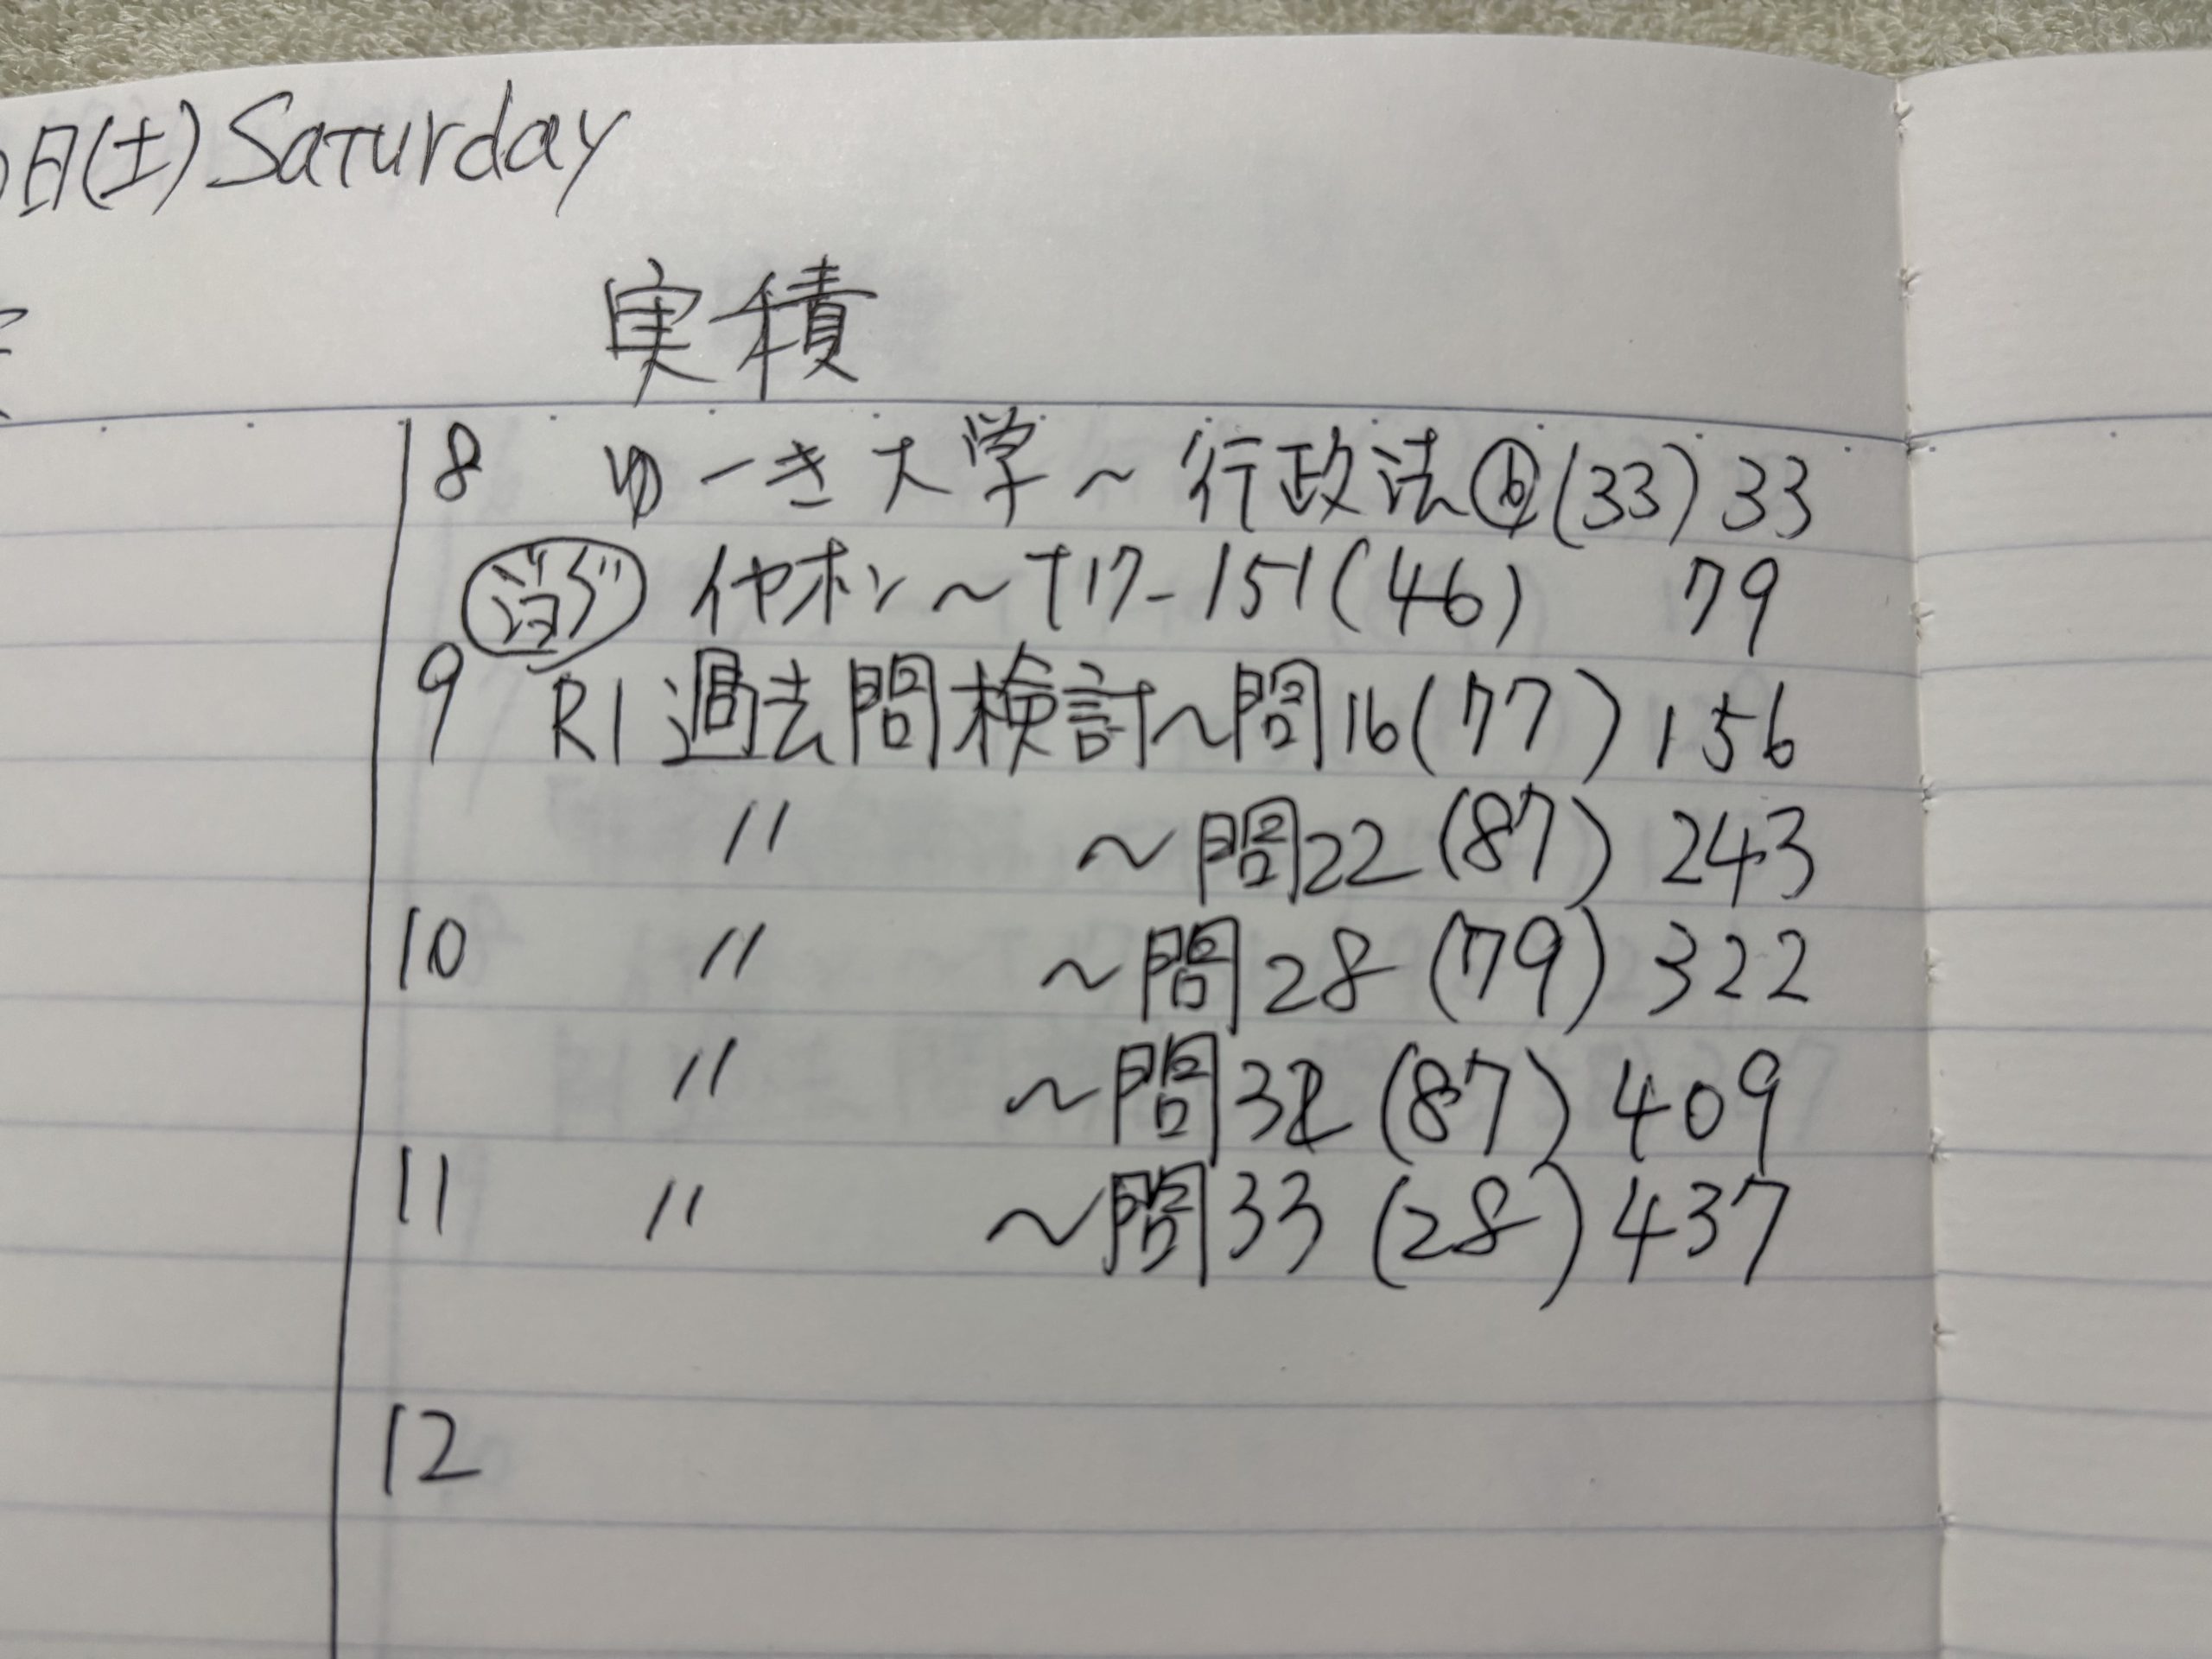 日(土) Saturday
実積
8 ゆーき大学～行政法⑥(33) 33
イヤホン～T17-151(46) 79
9 R1過去問検討～問16(77) 156
〃 ～問22(87) 243
10 〃 ～問28(79) 322
〃 ～問32(87) 409
11 〃 ～問33(28) 437
12